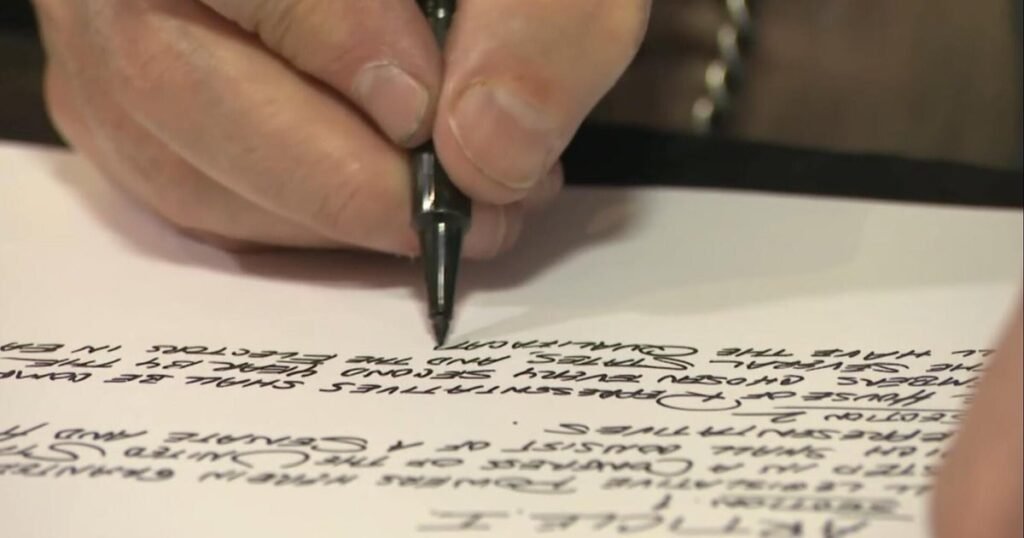 ARTICLE I
SECTION 1
LL LEGISLATIVE POWERS HEREIN GRANTED
STED IN A CONGRESS OF THE UNITED ST
ICH SHALL CONSIST OF A SENATE AND H
REPRESENTATIVES
SECTION 2
HOUSE OF REPRESENTATIVES SHALL BE COMP
MBERS CHOSEN EVERY SECOND YEAR BY THE
THE SEVERAL STATES, AND THE ELECTORS IN EA
LL HAVE THE